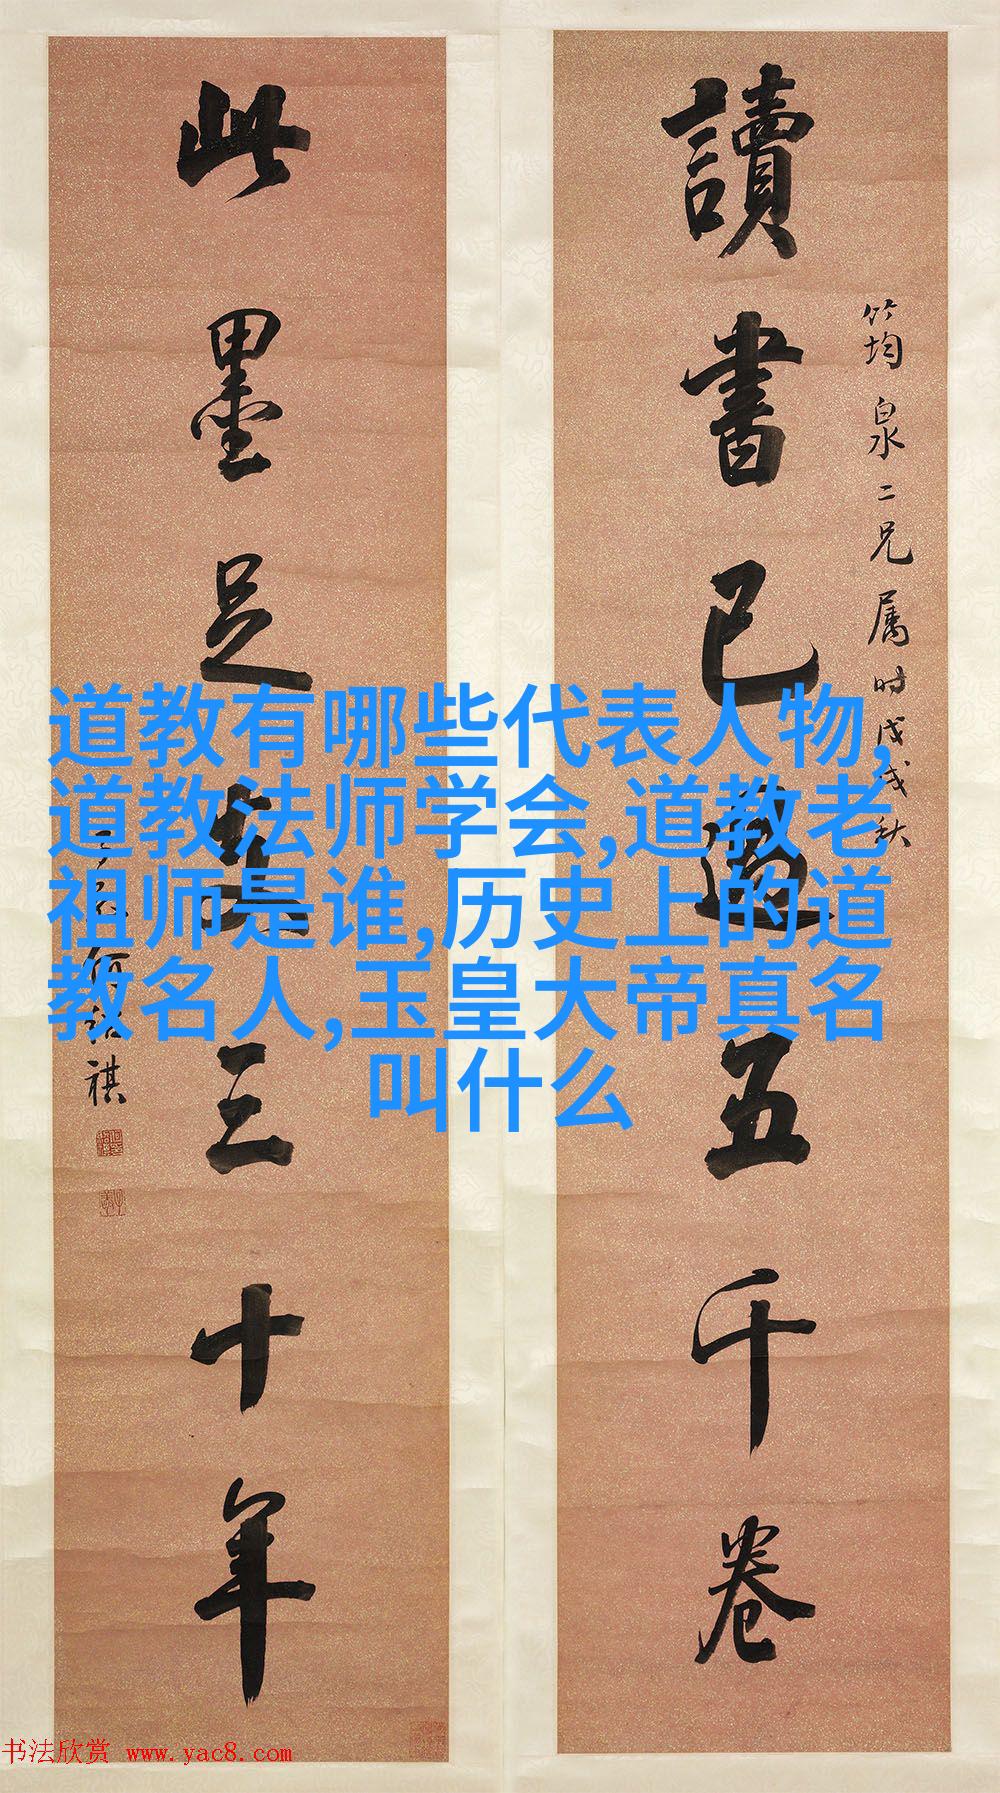 讀書已過五千卷
筠泉二兄属時戊戌秋
此墨足支三十年
何紹祺
道教有哪些代表人物,
道教法师学会,道教老
祖师是谁,历史上的道
教名人,玉皇大帝真名
叫什么
书法欣赏 www.yac8.com